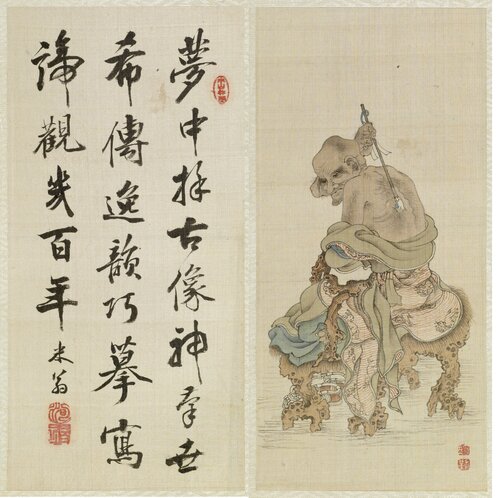 夢中古像神奇世
希傳逸韻巧摹寫
諦觀幾百年
米翁